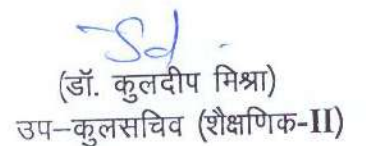 Sd/-
(डॉ. कुलदीप मिश्रा)
उप–कुलसचिव (शैक्षणिक-II)